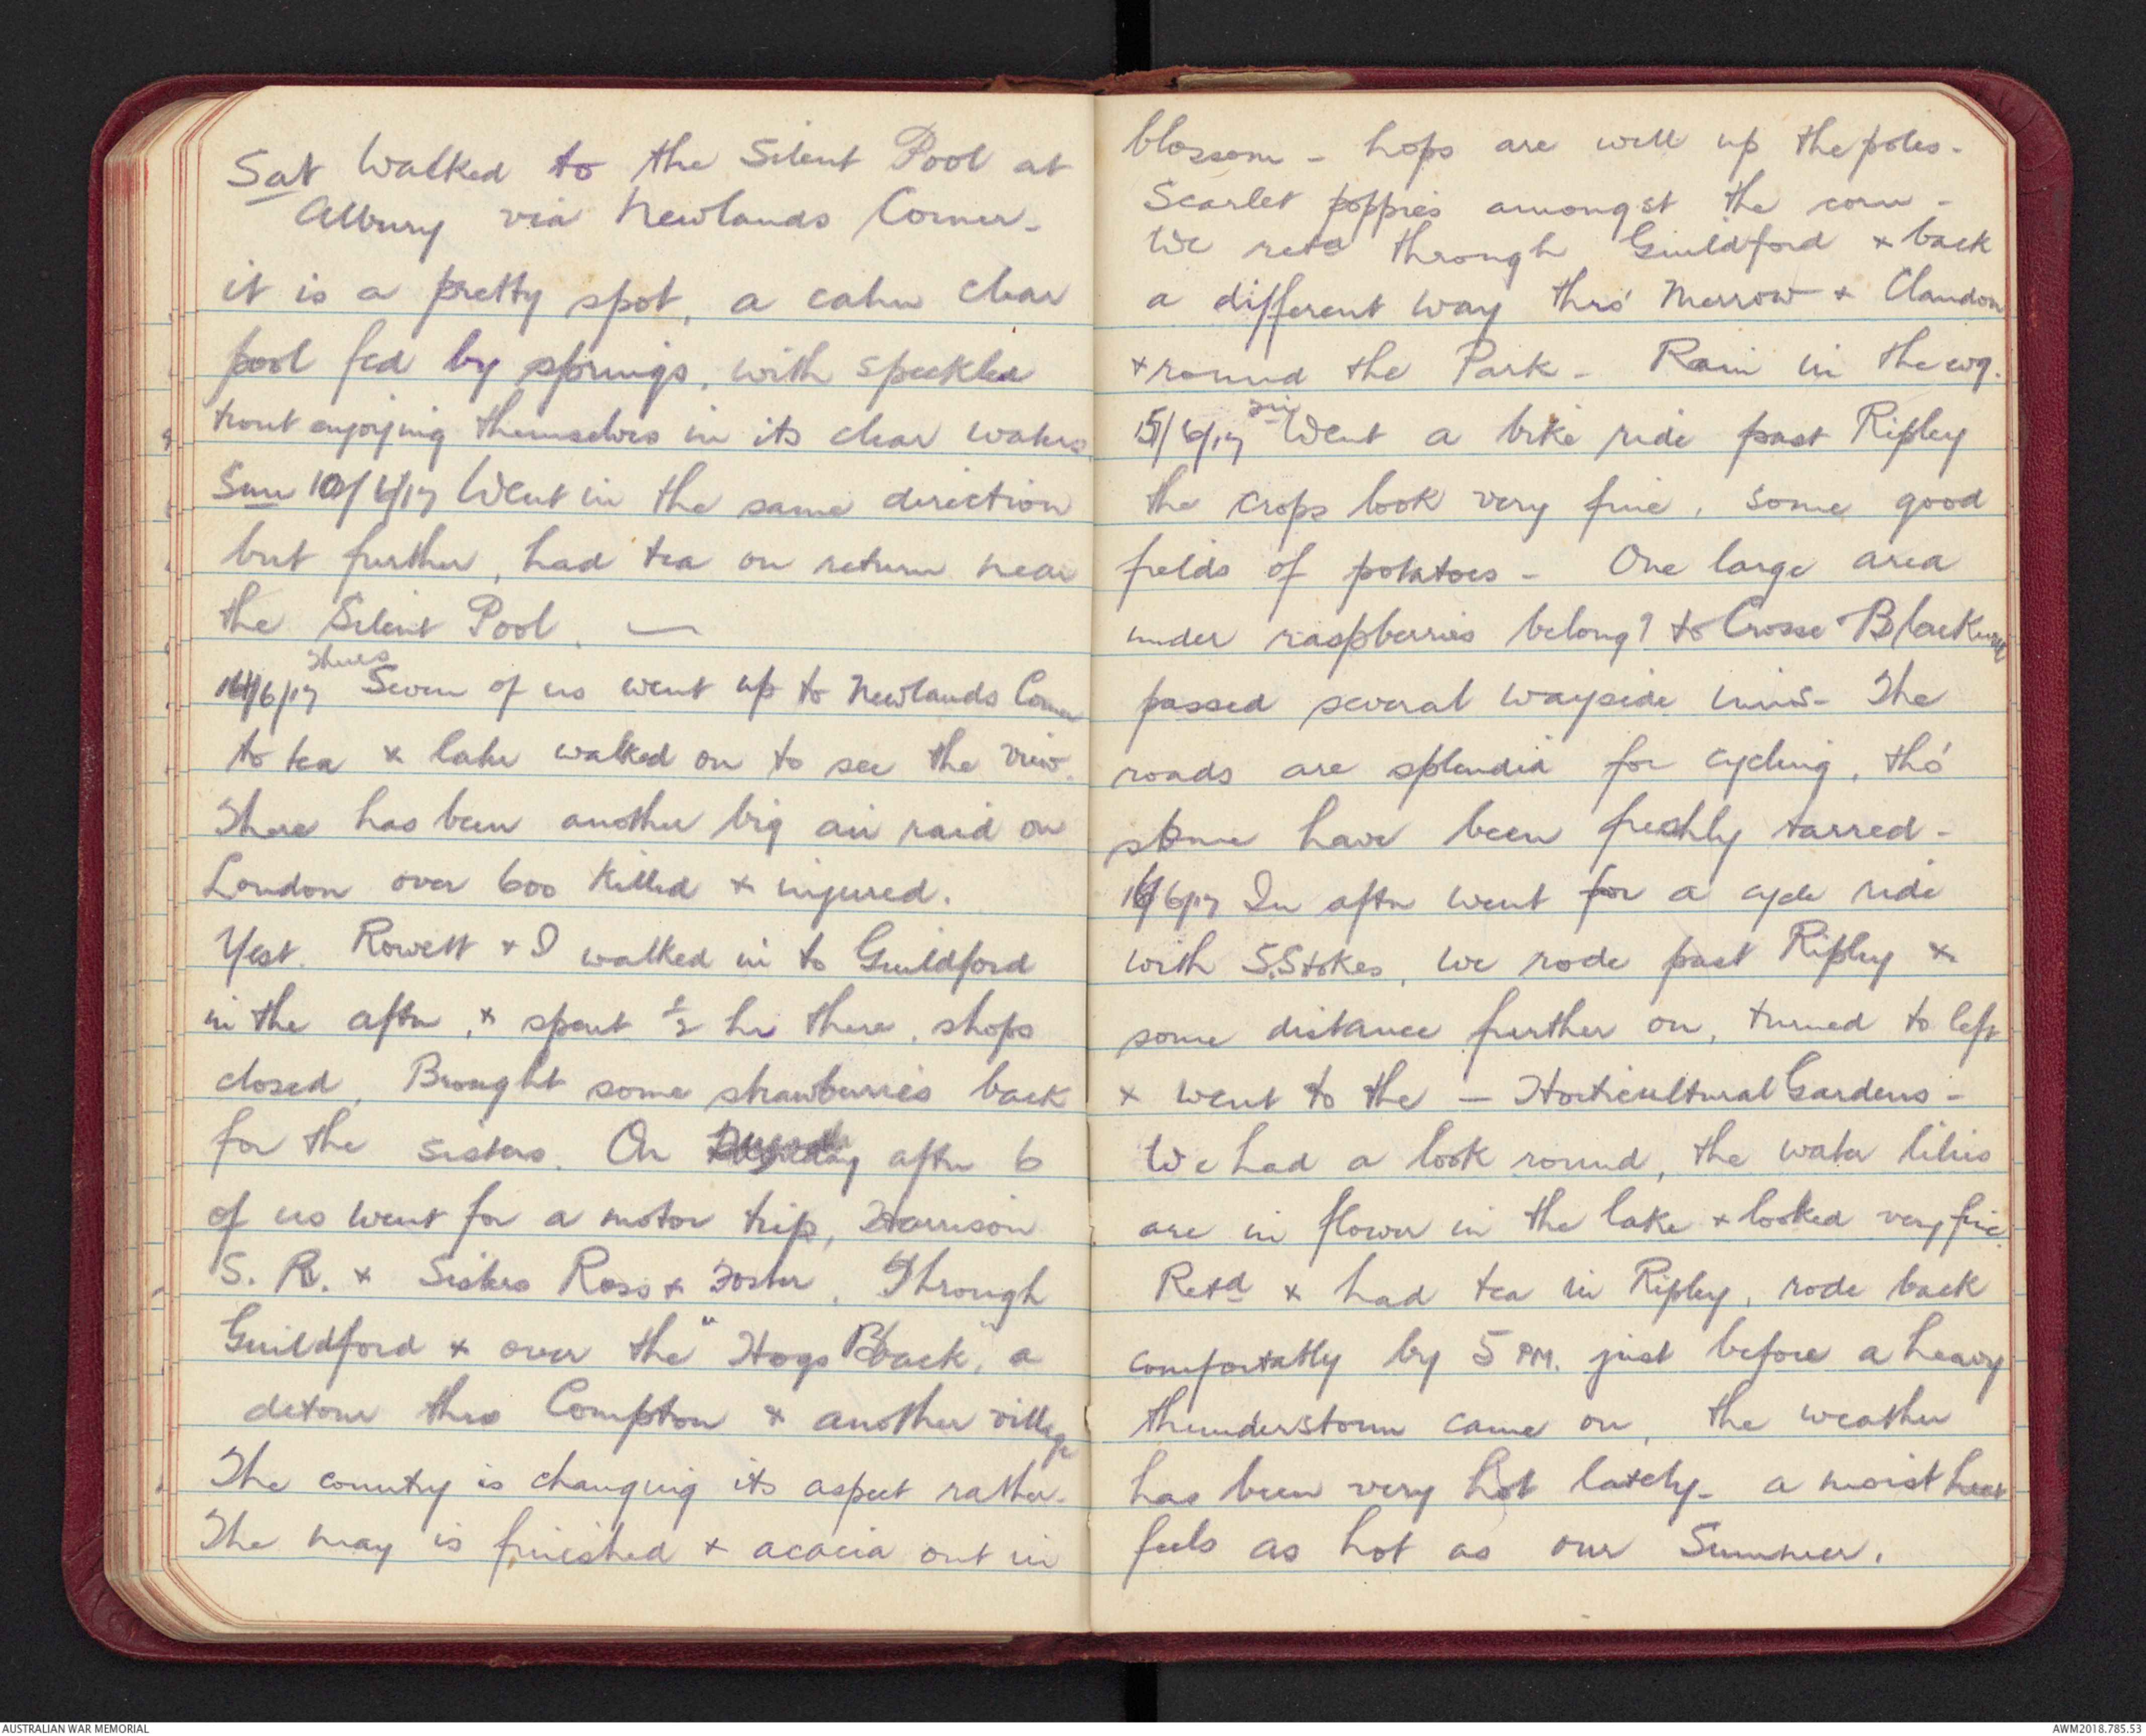 Sat Walked to the Silent Pool at
Albury via Newlands Corner -
it is a pretty spot, a calm clear
pool fed by springs, with speckled
trout enjoying themselves in its clear waters.
Sun 10/6/17 Went in the same direction
but further, had tea on return near
the Silent Pool. —
Thurs
14/6/17 Seven of us went up to Newlands Corner
to tea & later walked on to see the view.
There has been another big air raid on
London over 600 killed & injured.
Yest. Rowett & I walked in to Guildford
in the aftn, & spent ½ hr there, shops
closed, Brought some strawberries back
for the sisters. On aftn 6
of us went for a motor trip, Harrison
S. R. & Sisters Ross & Foster. Through
Guildford & over the "Hogs Back", a
detour thro Compton & another village
The country is changing its aspect rather -
The may is finished & acacia out in
blossom - hops are well up the poles -
Scarlet poppies amongst the corn -
We retd through Guildford & back
a different way thro' Merrow & Clandon
& round the Park - Rain in the evg.
15/6/17 Fri Went a bike ride past Ripley
the crops look very fine, some good
fields of potatoes - One large area
under raspberries belong? to Crosse Blackwell
passed several wayside inns - The
roads are splendid for cycling, tho'
some have been freshly tarred -
16/6/17 In aftn went for a cycle ride
with S. Stokes, we rode past Ripley &
some distance further on, turned to left
& went to the — Horticultural Gardens -
We had a look round, the water lilies
are in flower in the lake & looked very fine
Retd & had tea in Ripley, rode back
comfortably by 5 PM. just before a heavy
thunderstorm came on, the weather
has been very hot lately - a moist heat
feels as hot as our Summer.
AUSTRALIAN WAR MEMORIAL
AWM2018.785.53